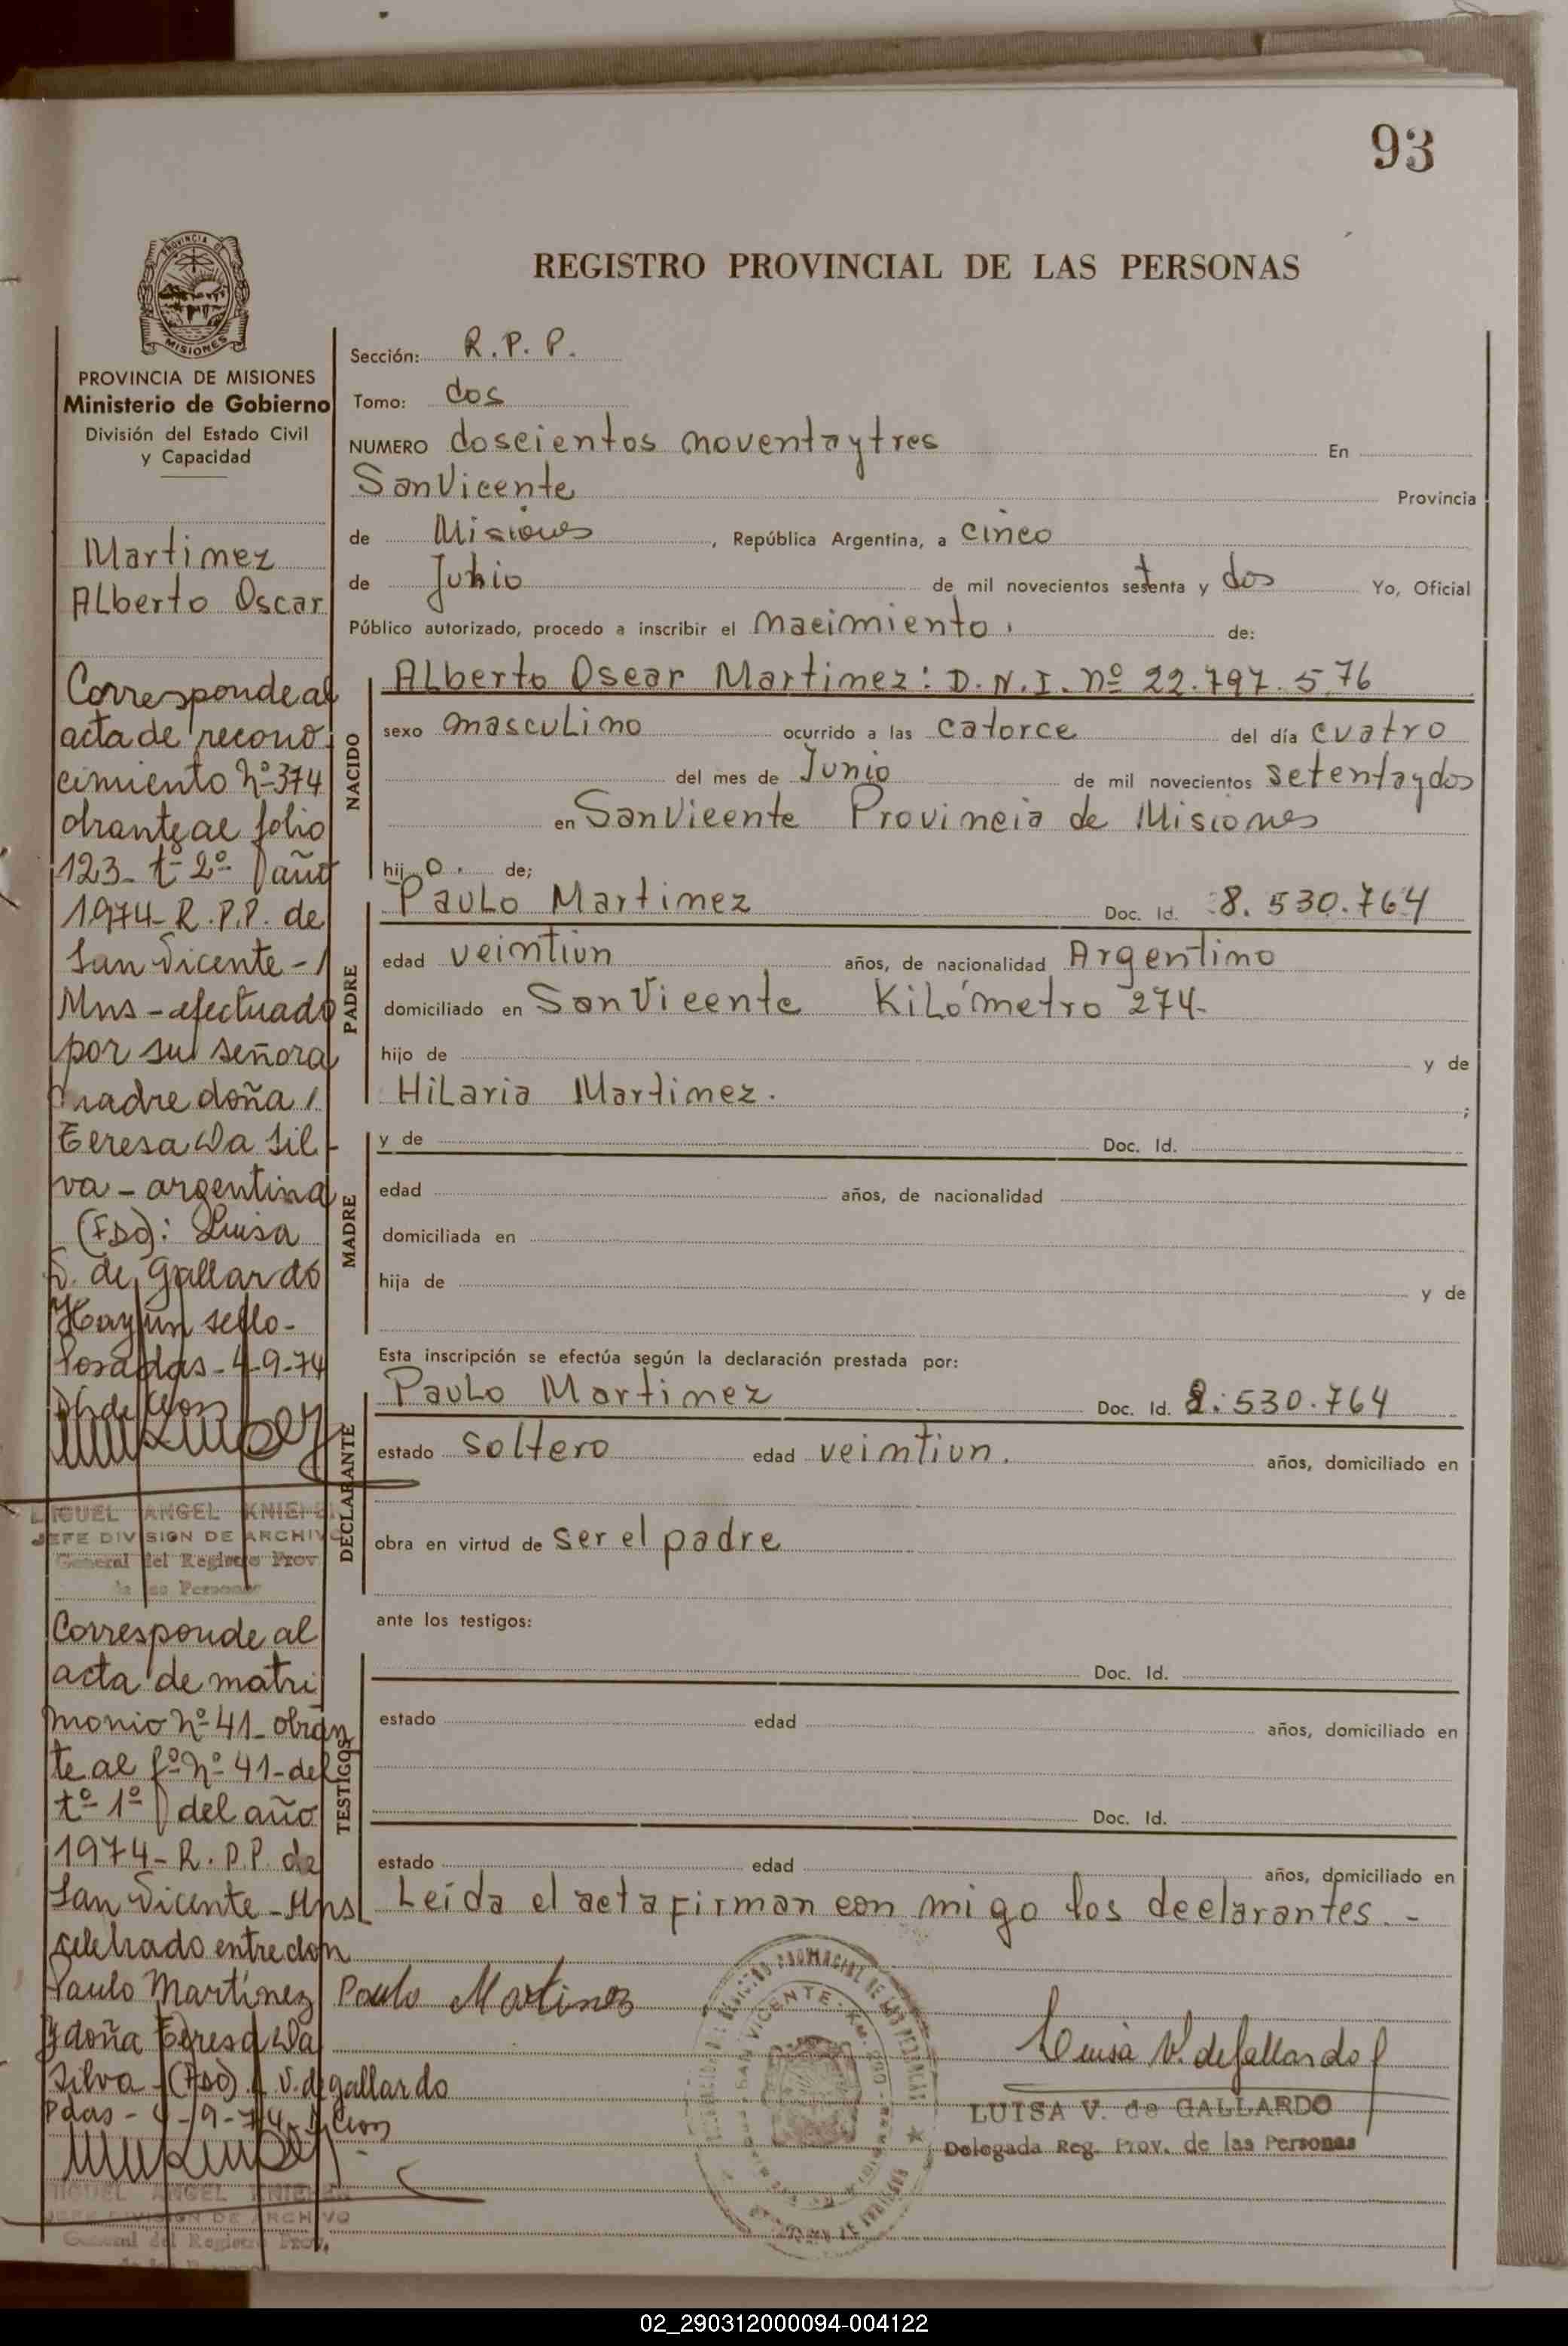 93
REGISTRO PROVINCIAL DE LAS PERSONAS
PROVINCIA DE
MISIONES
PROVINCIA DE MISIONES
Ministerio de Gobierno
División del Estado Civil
y Capacidad
Martinez
Alberto Oscar
Corresponde al
acta de recono
cimiento nº 374
obrante al folio
123- tº 2º año
1974- R.P.P. de
San Vicente -
Mns - efectuado
por su señora
madre doña
Teresa Da Sil-
va - argentina
(Fdo): Luisa
V. de Gallardo
Hay un sello-
Posadas - 4-9-74
MIGUEL ANGEL
JEFE DIVISION DE ARCHIVO
General del Registro Prov.
de las Personas
Corresponde al
acta de matri
monio nº 41- obran
te al fº nº 41- del
tº 1º del año
1974- R.P.P. de
San Vicente - Mns
celebrado entre don
Paulo Martínez
y doña Teresa Da
Silva - (Fdo). L V. de gallardo
Pdas - 4-9-74-
MIGUEL ANGEL
JEFE DIVISION DE ARCHIVO
General del Registro Prov.
Sección: R.P.P.
Tomo: dos
NUMERO doscientos noventaytres En
San Vicente Provincia
de Misiones, República Argentina, a cinco
de Junio de mil novecientos setenta y dos Yo, Oficial
Público autorizado, procedo a inscribir el nacimiento. de:
NACIDO
Alberto Oscar Martinez: D.N.I. nº 22.797.576
sexo masculino ocurrido a las catorce del día cuatro
del mes de Junio de mil novecientos setentaydos
en San Vicente Provincia de Misiones
hijo. de;
PADRE
Paulo Martinez Doc. Id. 8.530.764
edad veintiun años, de nacionalidad Argentino
domiciliado en San Vicente Kilómetro 274-
hijo de y de
Hilaria Martinez. ;
MADRE
y de Doc. Id.
edad años, de nacionalidad
domiciliada en
hija de y de
Esta inscripción se efectúa según la declaración prestada por:
DECLARANTE
Paulo Martinez Doc. Id. 8.530.764
estado soltero edad veintiun. años, domiciliado en
obra en virtud de ser el padre
ante los testigos:
TESTIGOS
Doc. Id.
estado edad años, domiciliado en
Doc. Id.
estado edad años, domiciliado en
Leída el acta firman con migo los declarantes.-
Paulo Martinez
SAN VICENTE
Luisa V. de Gallardo
LUISA V. de GALLARDO
Delegada Reg. Prov. de las Personas
02_290312000094-004122